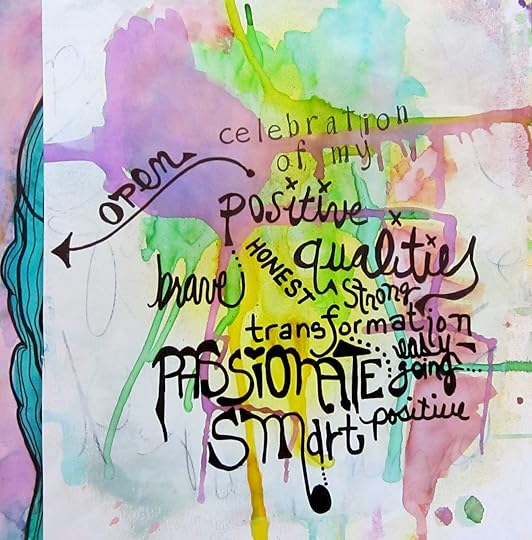 celebration
of my
open
positive
qualities
HONEST
brave
strong
transformation
easy-
going
PASSIONATE
smart
positive